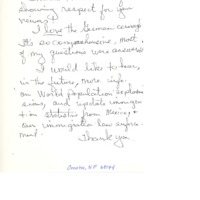 showing respect for your
viewers!
I love the German coverage
It's so comprehensive, most
of my questions were answered
I would like to hear,
in the future, more info.
on World population explosion
and update immigra
tion statistics from Mexico, +
our immigration law enforce
ment.
Thank you
Omaha, NE 68144